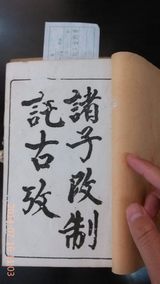 諸子改制
託古攷